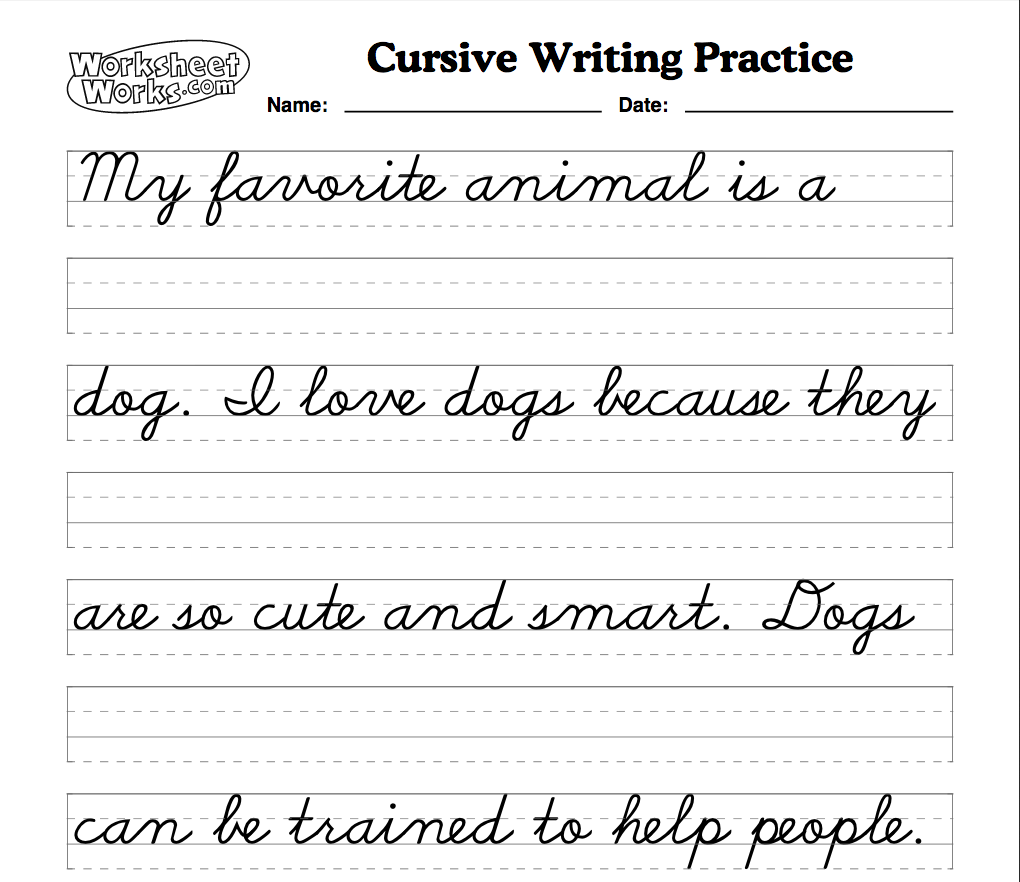 Worksheet
Works.com
Cursive Writing Practice
Name: Date:
My favorite animal is a
dog. I love dogs because they
are so cute and smart. Dogs
can be trained to help people.